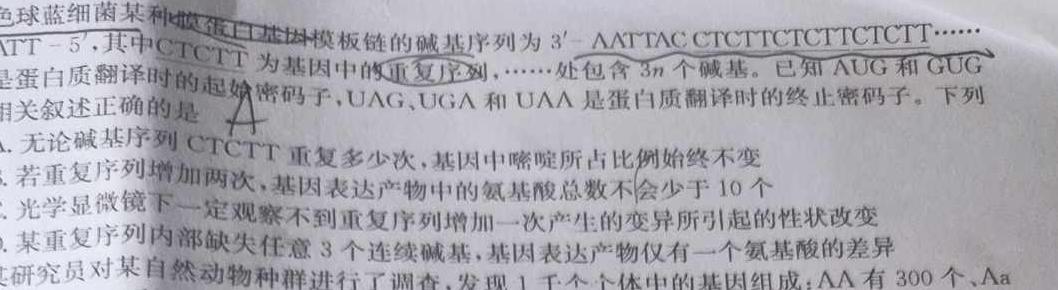 色球蓝细菌某种膜蛋白基因模板链的碱基序列为 3′- AATTAC CTCTTCTCTTCTCTT……
ATT - 5′,其中CTCTT 为基因中的重复序列,……处包含 3n 个碱基。已知 AUG 和 GUG
是蛋白质翻译时的起始密码子,UAG、UGA 和 UAA 是蛋白质翻译时的终止密码子。下列
相关叙述正确的是 A
A. 无论碱基序列 CTCTT 重复多少次,基因中嘧啶所占比例始终不变
B. 若重复序列增加两次,基因表达产物中的氨基酸总数不会少于 10 个
C. 光学显微镜下一定观察不到重复序列增加一次产生的变异所引起的性状改变
D. 某重复序列内部缺失任意 3 个连续碱基,基因表达产物仅有一个氨基酸的差异
某研究员对某自然动物种群进行了调查,发现 1 千个个体中的基因组成:AA 有 300 个、Aa